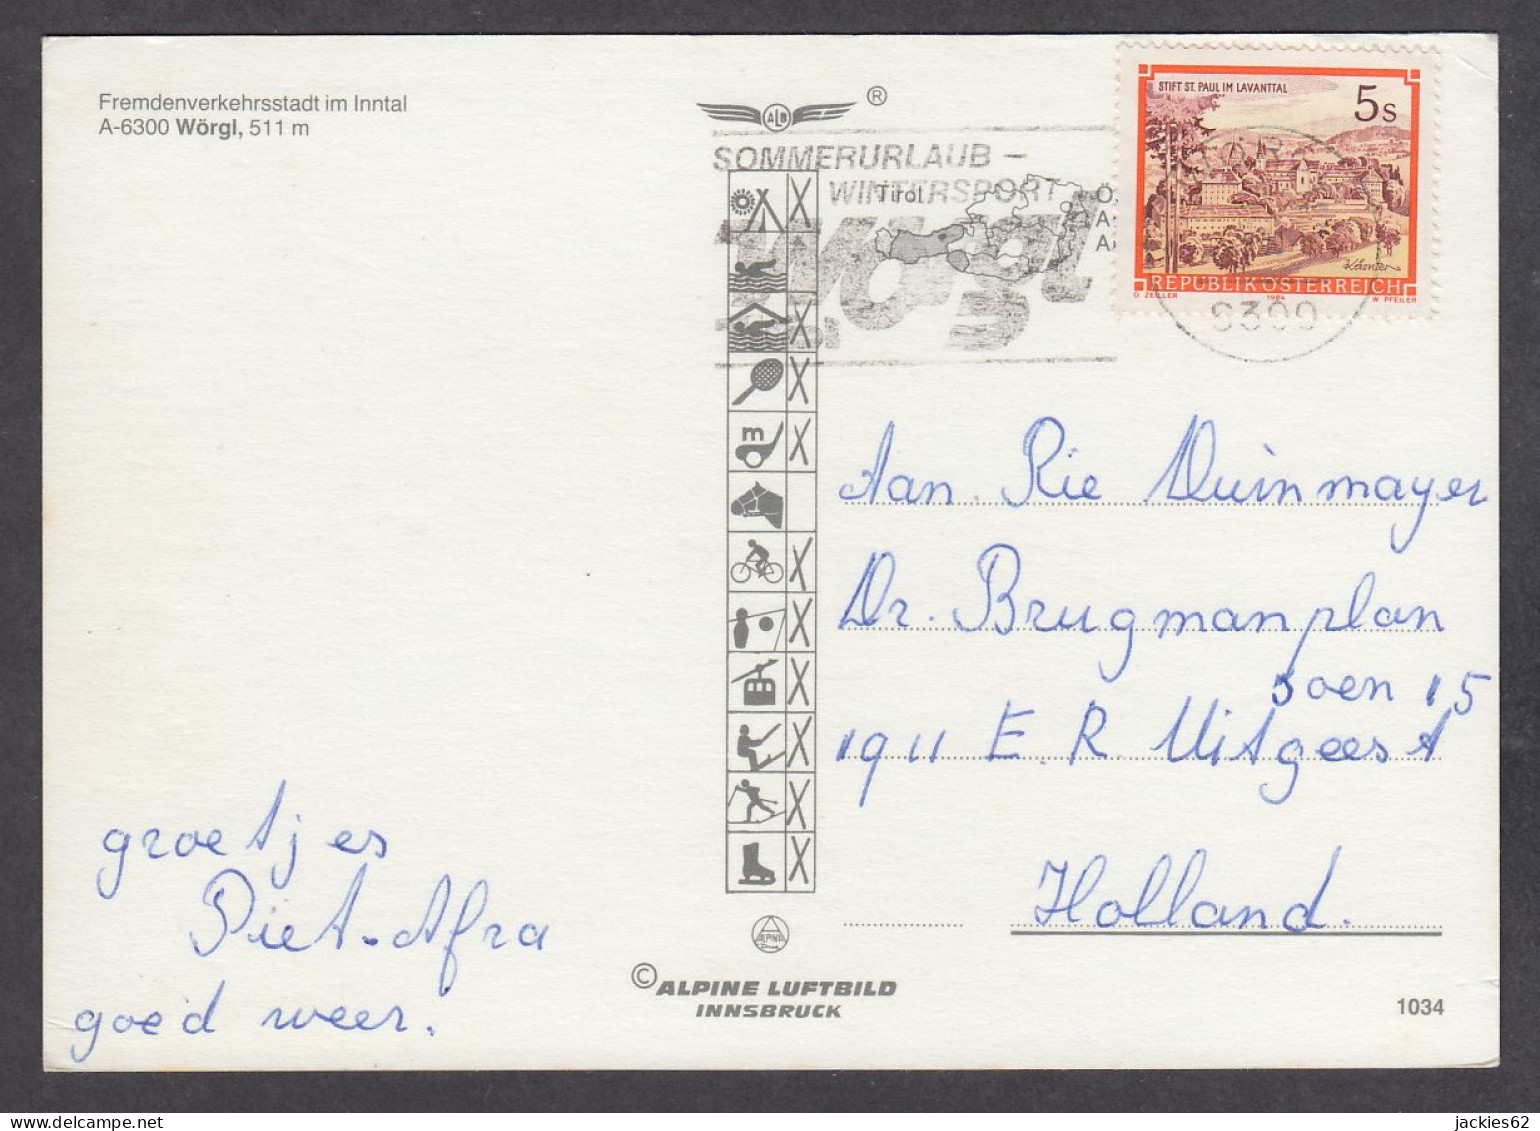 Fremdenverkehrsstadt im Inntal
A-6300 Wörgl, 511 m
ALB ®
SOMMERURLAUB -
WINTERSPORT
Wörgl
Tirol
Ö
A
A
STIFT ST. PAUL IM LAVANTTAL
5 s
Kärnten
REPUBLIK ÖSTERREICH
O. ZEILLER 1984 W. PFEILER
6300
m
Aan. Rie Duinmayer
Dr. Brugmanplan
15
1911 E.R. Uitgeest
Holland.
groetjes
Piet-Afra
goed weer.
ALPINA
Druck
© ALPINE LUFTBILD
INNSBRUCK
1034
jackies62